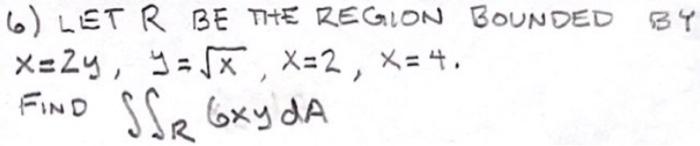 6) LET R BE THE REGION BOUNDED BY
x=2y, y=√x, x=2, x=4.
FIND ∫∫R 6xy dA